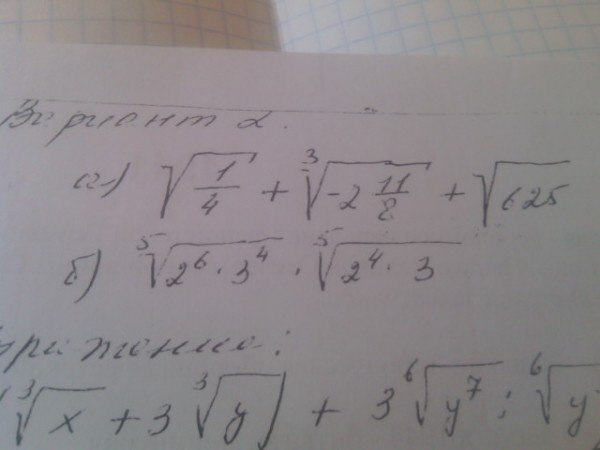 Вариант 2.
а) √(1/4) + ∛(-2 11/8) + √625
б) ⁵√(2⁶ · 3⁴) · ⁵√(2⁴ · 3)
ражению:
∛x + 3 ∛y) + 3 ⁶√(y⁷) : ⁶√y